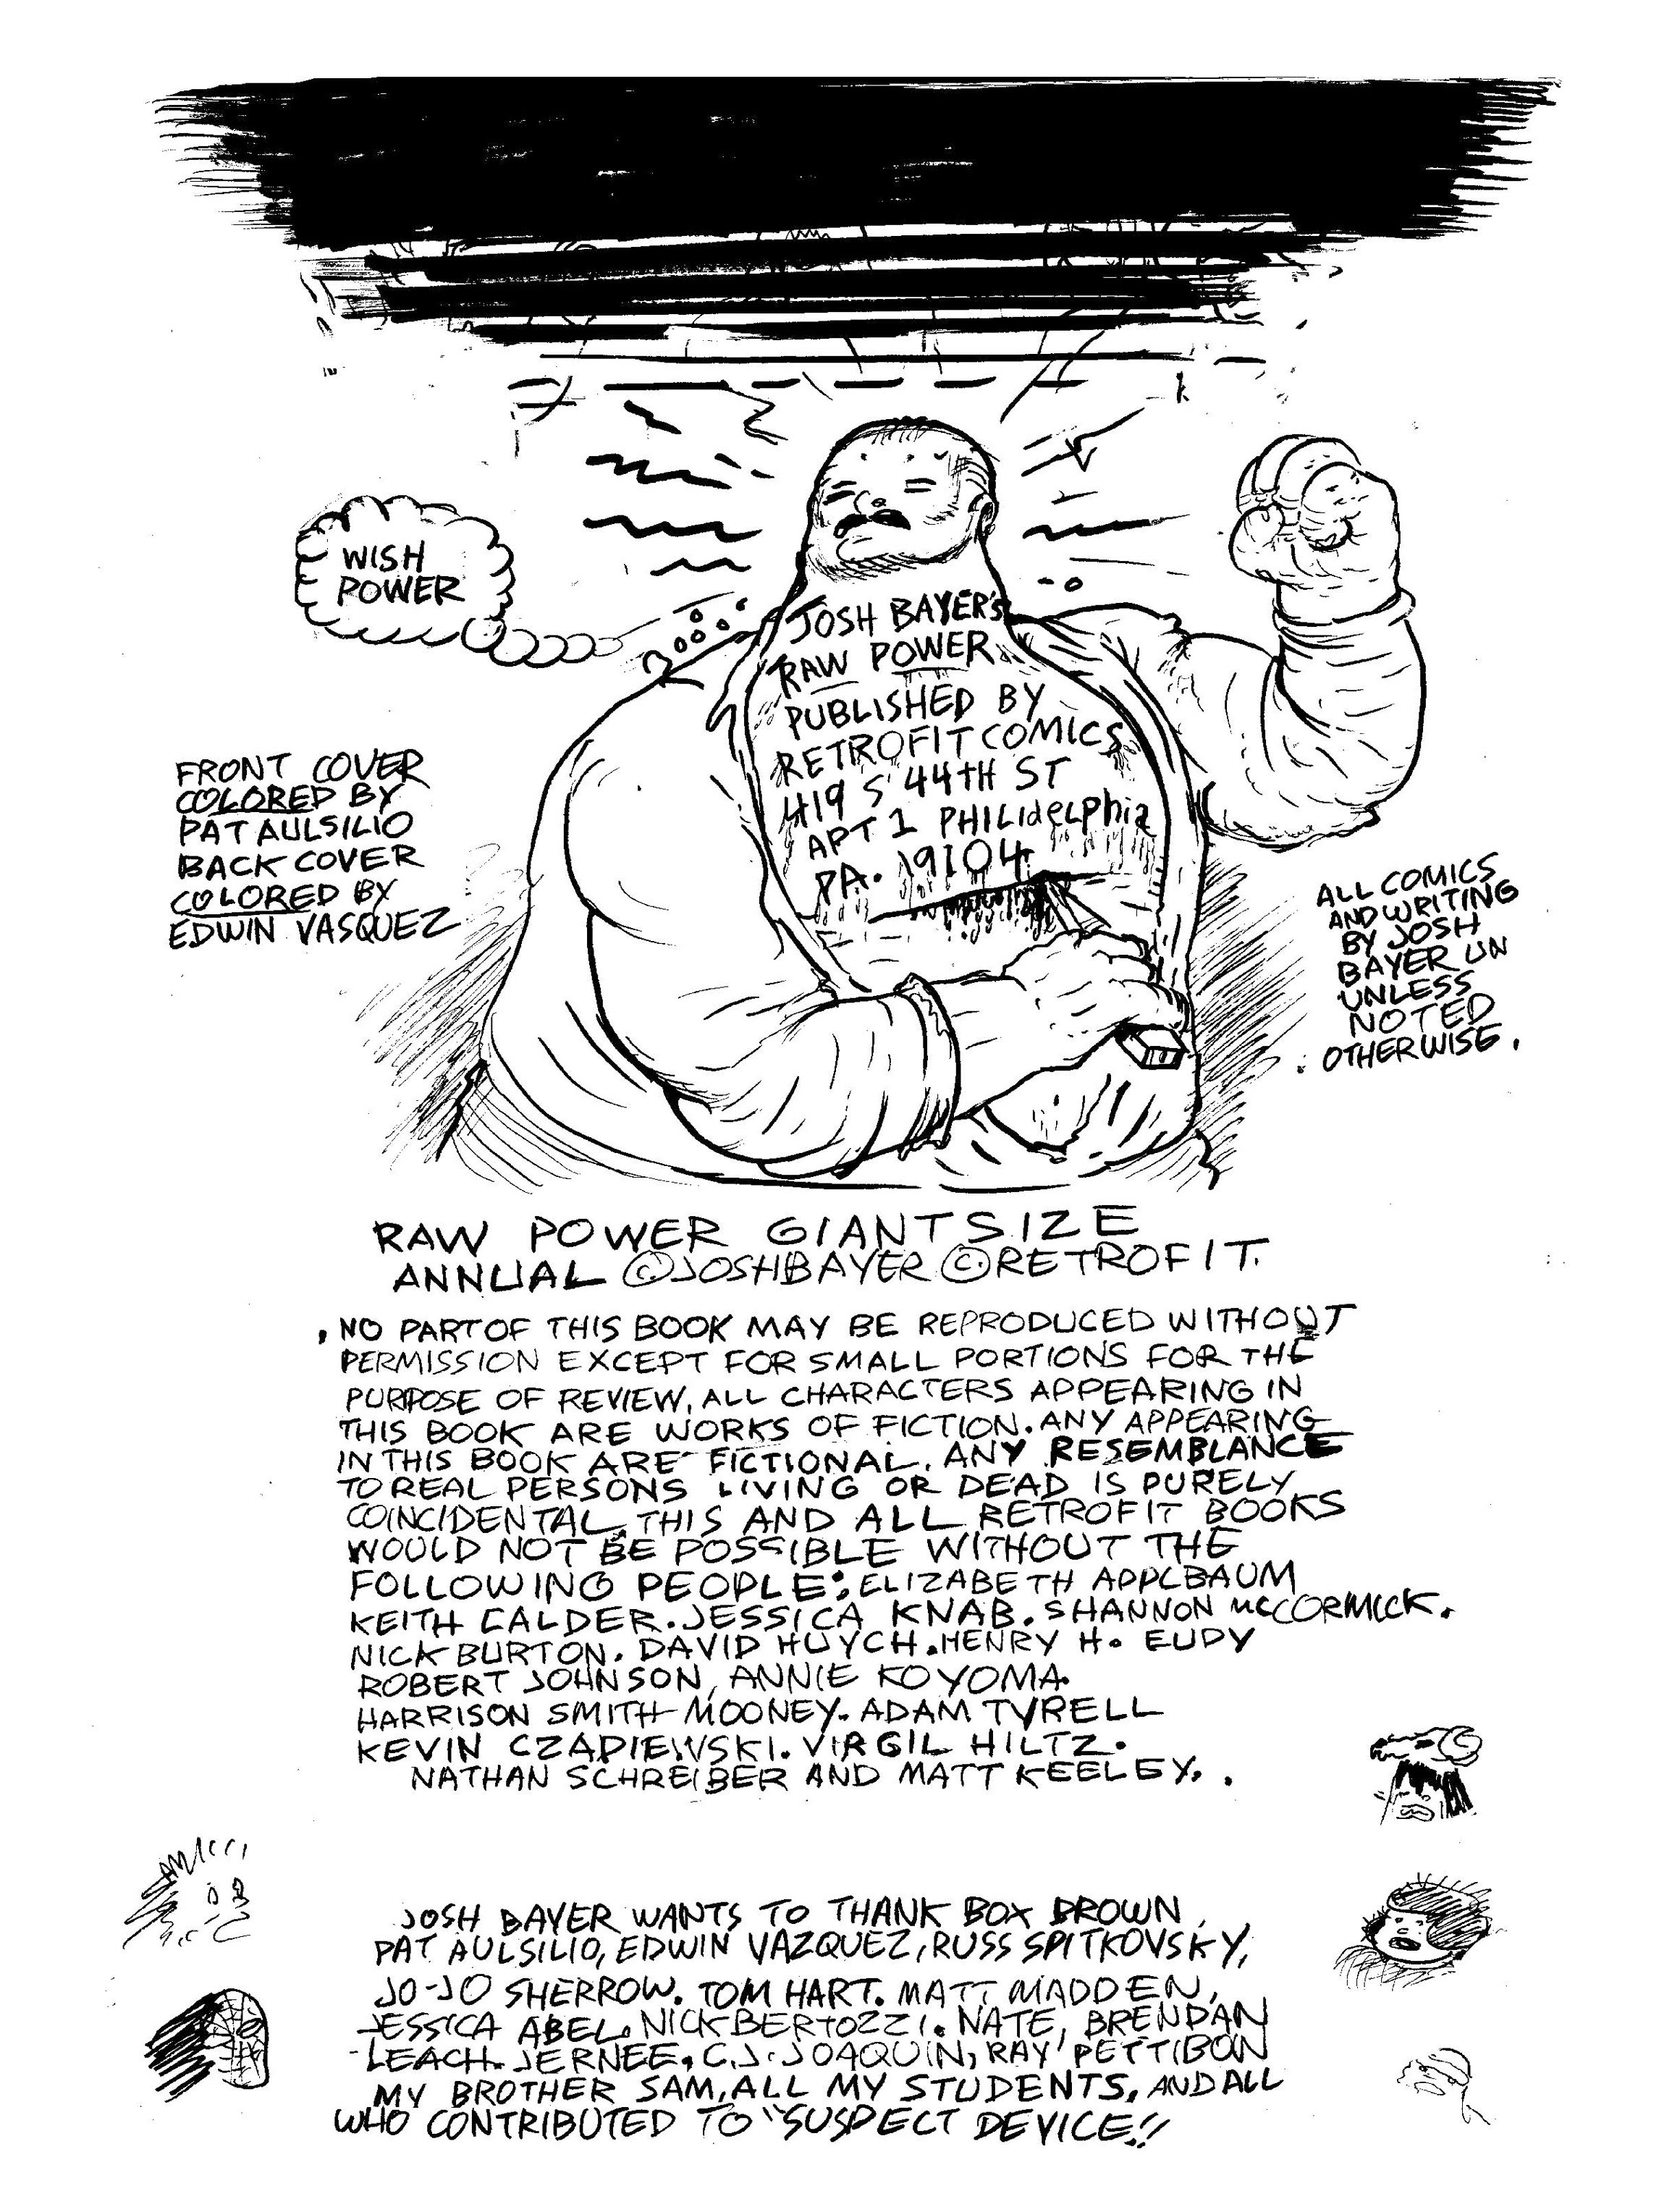 WISH
POWER
JOSH BAYER'S
RAW POWER
PUBLISHED BY
RETROFIT COMICS
419 S 44TH ST
APT 1 PHILIdELPhia
PA. 19104
FRONT COVER
COLORED BY
PAT AULSILIO
BACK COVER
COLORED BY
EDWIN VASQUEZ
ALL COMICS
AND WRITING
BY JOSH
BAYER UN
UNLESS
NOTED
OTHERWISE.
RAW POWER GIANT SIZE
ANNUAL © JOSH BAYER © RETROFIT.
NO PART OF THIS BOOK MAY BE REPRODUCED WITHOUT
PERMISSION EXCEPT FOR SMALL PORTIONS FOR THE
PURPOSE OF REVIEW, ALL CHARACTERS APPEARING IN
THIS BOOK ARE WORKS OF FICTION. ANY APPEARING
IN THIS BOOK ARE FICTIONAL. ANY RESEMBLANCE
TO REAL PERSONS LIVING OR DEAD IS PURELY
COINCIDENTAL. THIS AND ALL RETROFIT BOOKS
WOULD NOT BE POSSIBLE WITHOUT THE
FOLLOWING PEOPLE: ELIZABETH APPLBAUM
KEITH CALDER. JESSICA KNAB. SHANNON McCORMICK.
NICK BURTON. DAVID HUYCH. HENRY H. EUDY
ROBERT JOHNSON, ANNIE KOYOMA
HARRISON SMITH-MOONEY. ADAM TYRELL
KEVIN CZAPIEWSKI. VIRGIL HILTZ.
NATHAN SCHREIBER AND MATT KEELEY. .
JOSH BAYER WANTS TO THANK BOX BROWN,
PAT AULSILIO, EDWIN VAZQUEZ, RUSS SPITKOVSKY,
JO-JO SHERROW. TOM HART. MATT MADDEN,
JESSICA ABEL. NICK BERTOZZI. NATE, BRENDAN
LEACH. JERNEE, C.J. JOAQUIN, RAY PETTIBON
MY BROTHER SAM, ALL MY STUDENTS, AND ALL
WHO CONTRIBUTED TO "SUSPECT DEVICE!!